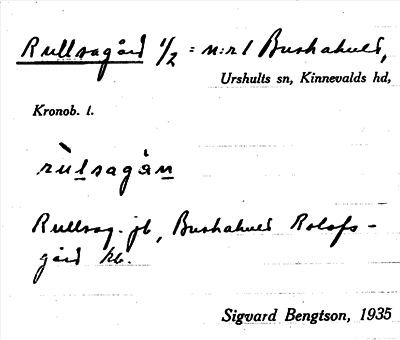 Rullsagård 1/2 = n:r 1 Buskahult,
Urshults sn, Kinnevalds hd,
Kronob. l.
rùlsagån
Rullsag. jb, Buskahult Rolofs-
gård kb.
Sigvard Bengtson, 1935